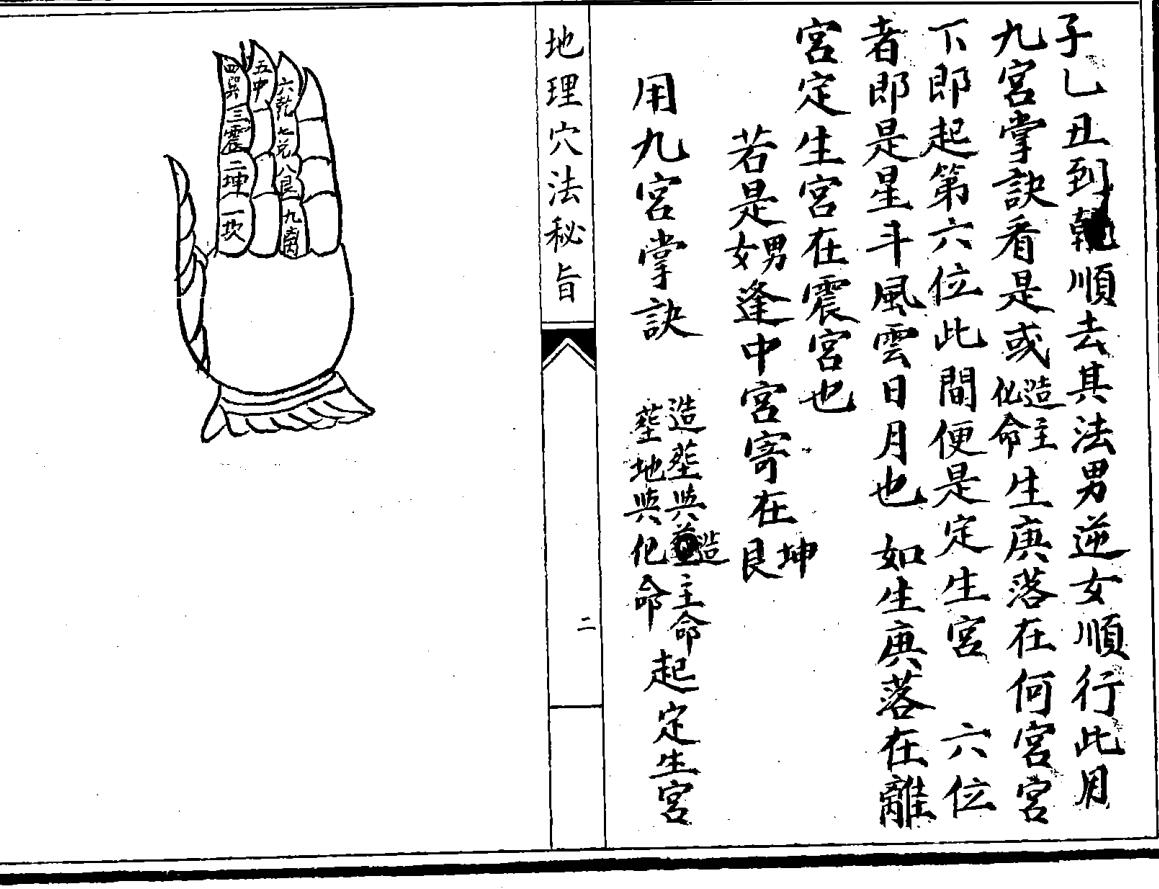 子乙丑到順去其法男逆女順行此用
九宮掌訣看是或造主化命生庚落在何宮宮
下即起第六位此間便是定生宮 六位
者即是星斗風雲日月也 如生庚落在離
宮定生宮在震宮也
若是男女逢中宮寄在坤艮
用九宮掌訣 造塟與造主命塟地與化命起定生宮
地理穴法秘旨
二
六乾七兌八艮九离
五中
四巽三震二坤一坎